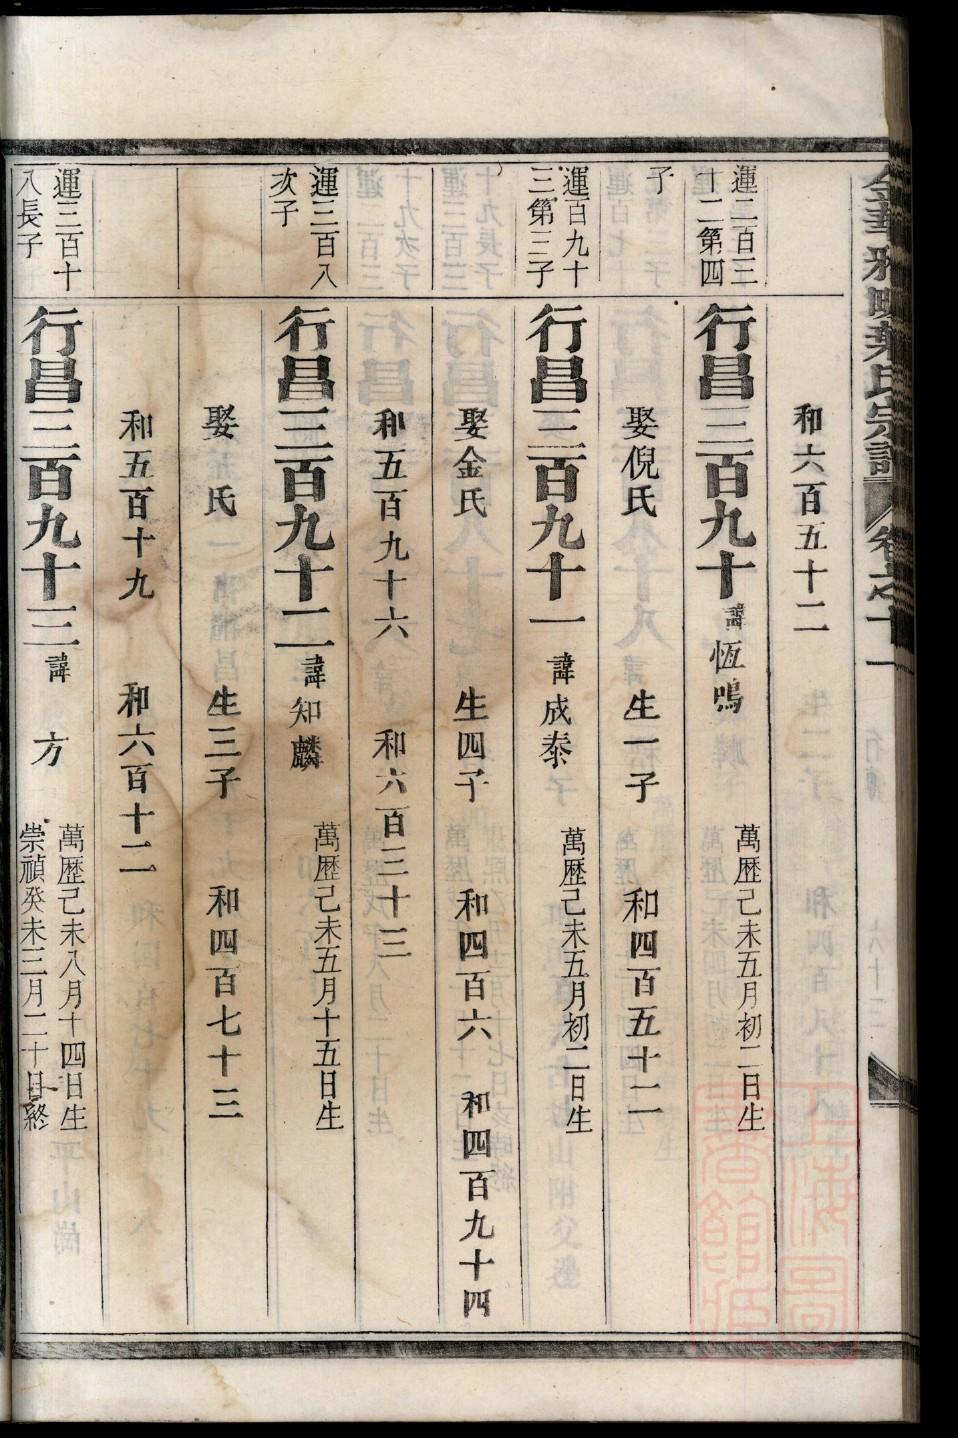 和六百五十二
運二百三十二第四子
行昌三百九十 諱恆鳴 萬歷己未五月初二日生
娶倪氏 生一子 和四百五十二
運百九十三第三子
行昌三百九十一 諱成泰 萬歷己未五月初二日生
娶金氏 生四子 和四百六 和四百九十四
和五百九十六 和六百三十三
運三百八次子
行昌三百九十二 諱知麟 萬歷己未五月十五日生
娶 氏 生三子 和四百七十三
和五百十九 和六百十二
運三百十八長子
行昌三百九十三 諱 方 萬歷己未八月十四日生
崇禎癸未三月二十日終